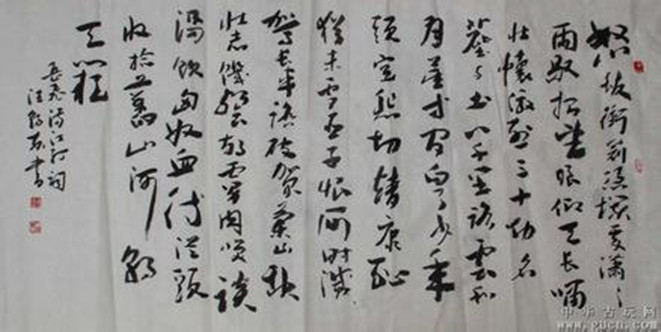 怒髮衝冠憑欄處瀟々
雨歇抬望眼仰天長嘯
壯懷激烈三十功名
塵與土八千里路雲和
月莫等閒白了少年
頭空悲切靖康恥
猶未雪臣子恨何時滅
駕長車踏破賀蘭山缺
壯志飢餐胡虜肉笑談
渴飲匈奴血待從頭
收拾舊山河朝
天闕
岳飛滿江紅詞
書
中华古玩网
www.gucn.com